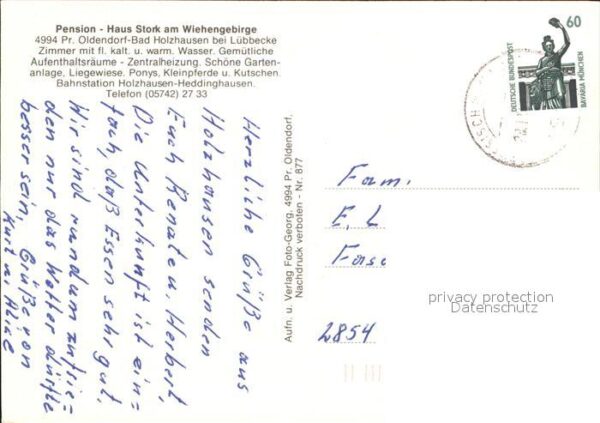 Pension - Haus Stork am Wiehengebirge
4994 Pr. Oldendorf-Bad Holzhausen bei Lübbecke
Zimmer mit fl. kalt. u. warm. Wasser. Gemütliche
Aufenthaltsräume - Zentralheizung. Schöne Garten-
anlage, Liegewiese. Ponys, Kleinpferde u. Kutschen.
Bahnstation Holzhausen-Heddinghausen.
Telefon (05742) 27 33
Herzliche Grüße aus
Holzhausen senden
Euch Renate u. Herbert,
Die Unterkunft ist ein=
fach, daß Essen sehr gut.
Wir sind rundum zufrie=
den nur das Wetter dürfte
besser sein, Grüße von
Kurt u.
Aufn. u. Verlag Foto-Georg, 4994 Pr. Oldendorf.
Nachdruck verboten - Nr. 877
60
DEUTSCHE BUNDESPOST
BAVARIA MÜNCHEN
Fam.
E. L
Fase
2854
privacy protection
Datenschutz